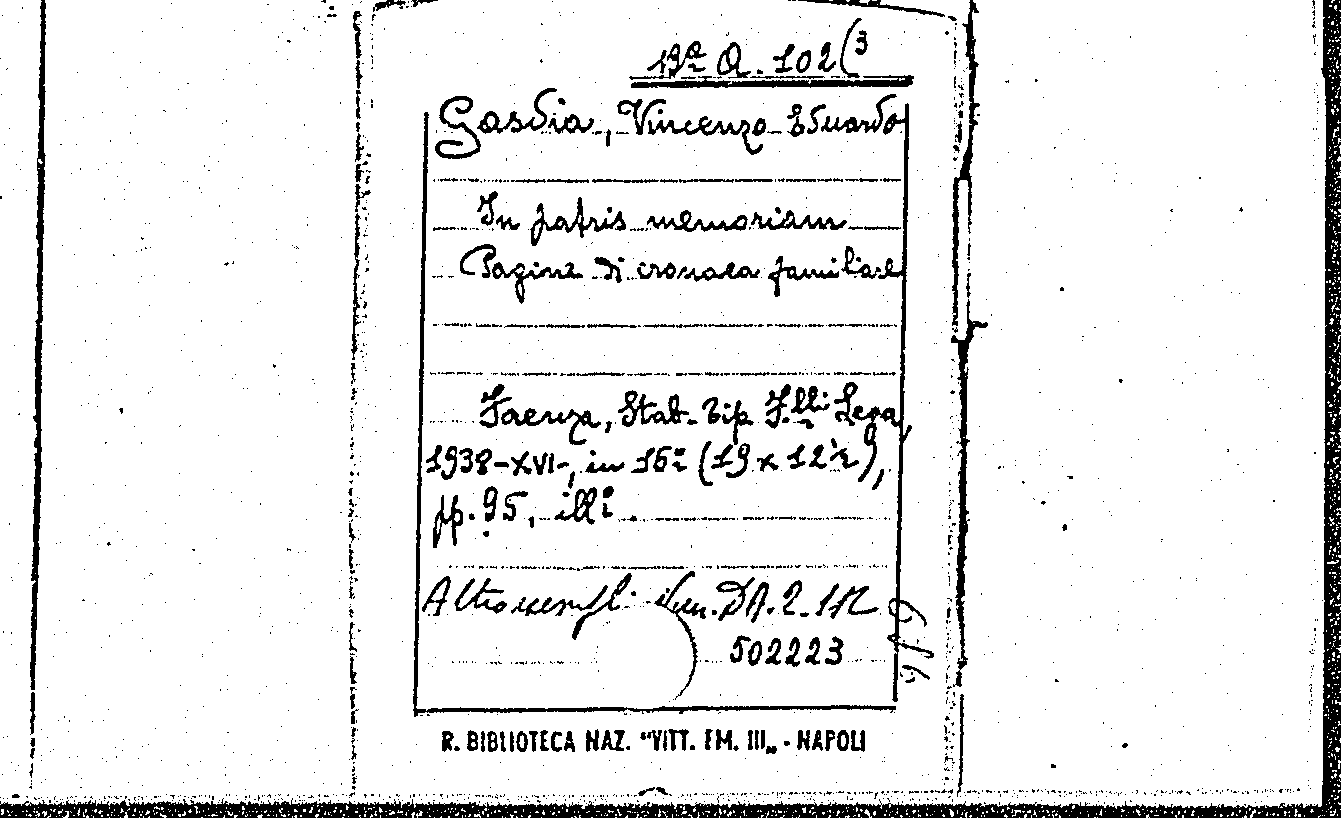 19ª Q. 102(3
Gasdia, Vincenzo Eduardo
In patris memoriam
Pagine di cronaca familiare
Faenza, Stab. Tip. F.lli Lega,
1938-XVI-, in 16º (19 x 12½),
pp. 95, ill.
Altro esempl.
502223
R. BIBLIOTECA NAZ. "VITT. EM. III„ - NAPOLI